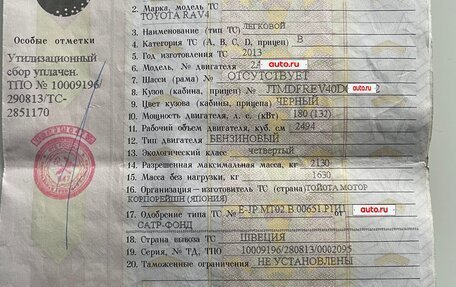 2. Марка, модель ТС
TOYOTA RAV4
3. Наименование (тип ТС) ЛЕГКОВОЙ
4. Категория ТС (А, В, С, D, прицеп) В
5. Год изготовления ТС 2013
6. Модель, № двигателя 2A auto.ru
7. Шасси (рама) № ОТСУТСТВУЕТ
8. Кузов (кабина, прицеп) № JTMDFREV40D auto.ru 2
9. Цвет кузова (кабины, прицепа) ЧЕРНЫЙ
10. Мощность двигателя, л. с. (кВт) 180 (132)
11. Рабочий объем двигателя, куб. см 2494
12. Тип двигателя БЕНЗИНОВЫЙ
13. Экологический класс четвертый
14. Разрешенная максимальная масса, кг 2130
15. Масса без нагрузки, кг 1630
16. Организация — изготовитель ТС (страна) ТОЙОТА МОТОР
КОРПОРЕЙШН (ЯПОНИЯ)
17. Одобрение типа ТС № E-JP.MT02.B.00651.P1 от auto.ru
САТР-ФОНД
18. Страна вывоза ТС ШВЕЦИЯ
19. Серия, № ТД, ТПО 10009196/280813/0002095
20. Таможенные ограничения НЕ УСТАНОВЛЕНЫ
Особые отметки
Утилизационный
сбор уплачен.
ТПО № 10009196/
290813/ТС-
2851170